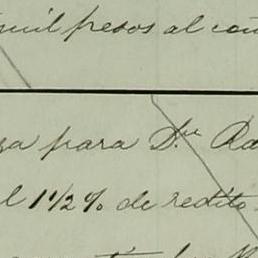 mil pesos al con
za para Dn Ra
l 1 1/2 % de redito